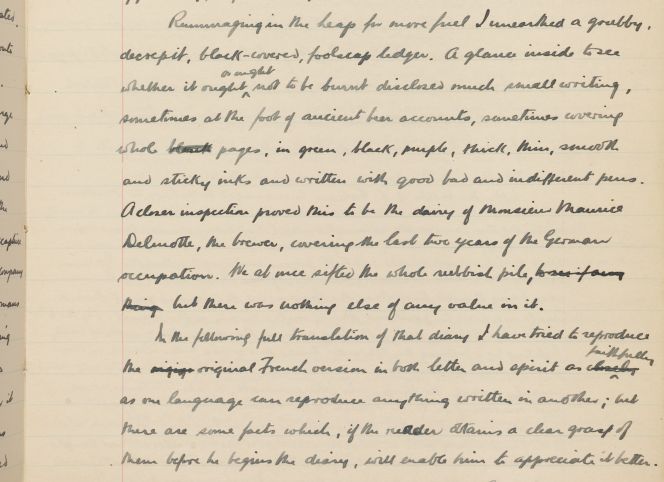 Rummaging in the heap for more fuel I unearthed a grubby,
decrepit, black-covered, foolscap ledger. A glance inside to see
or ought
whether it ought not to be burnt disclosed much small writing,
sometimes at the foot of ancient beer accounts, sometimes covering
whole blank pages, in green, black, purple, thick, thin, smooth
and sticky inks and written with good bad and indifferent pens.
A closer inspection proved this to be the dairy of Monsieur Maurice
Delmotte, the brewer, covering the last two years of the German
occupation. We at once sifted the whole rubbish pile, to see if any
thing but there was nothing else of any value in it.
In the following full translation of that diary I have tried to reproduce
faithfully
the original French version in both letter and spirit as closely
as one language can reproduce anything written in another; but
there are some facts which, if the reader obtains a clear grasp of
them before he begins the diary, will enable him to appreciate it better.